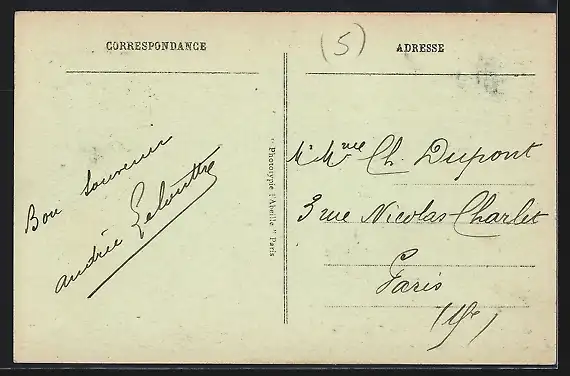 CORRESPONDANCE
(5)
ADRESSE
Bon souvenir
Andrée
Phototypie "Abeille" Paris
M. Mme Ch Dupont
3 rue Nicolas Charlet
Paris